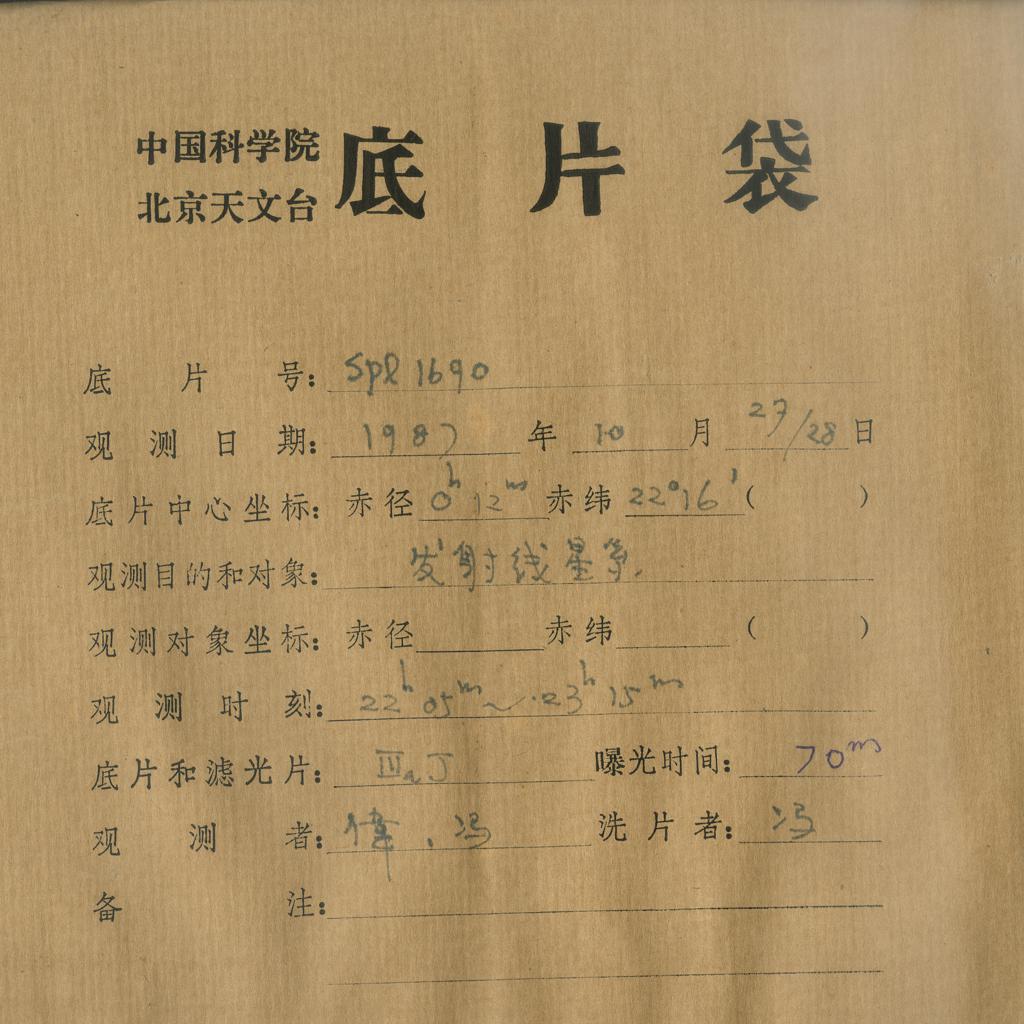 中国科学院
北京天文台 底片袋
底片号: Spl 1690
观测日期: 1987年10月27/28日
底片中心坐标: 赤径 0h 12m 赤纬 22°16′( )
观测目的和对象: 发射线星系.
观测对象坐标: 赤径 赤纬 ( )
观测时刻: 22h 05m ~ 23h 15m
底片和滤光片: IIIaJ 曝光时间: 70m
观测者: 冯 洗片者: 冯
备注: